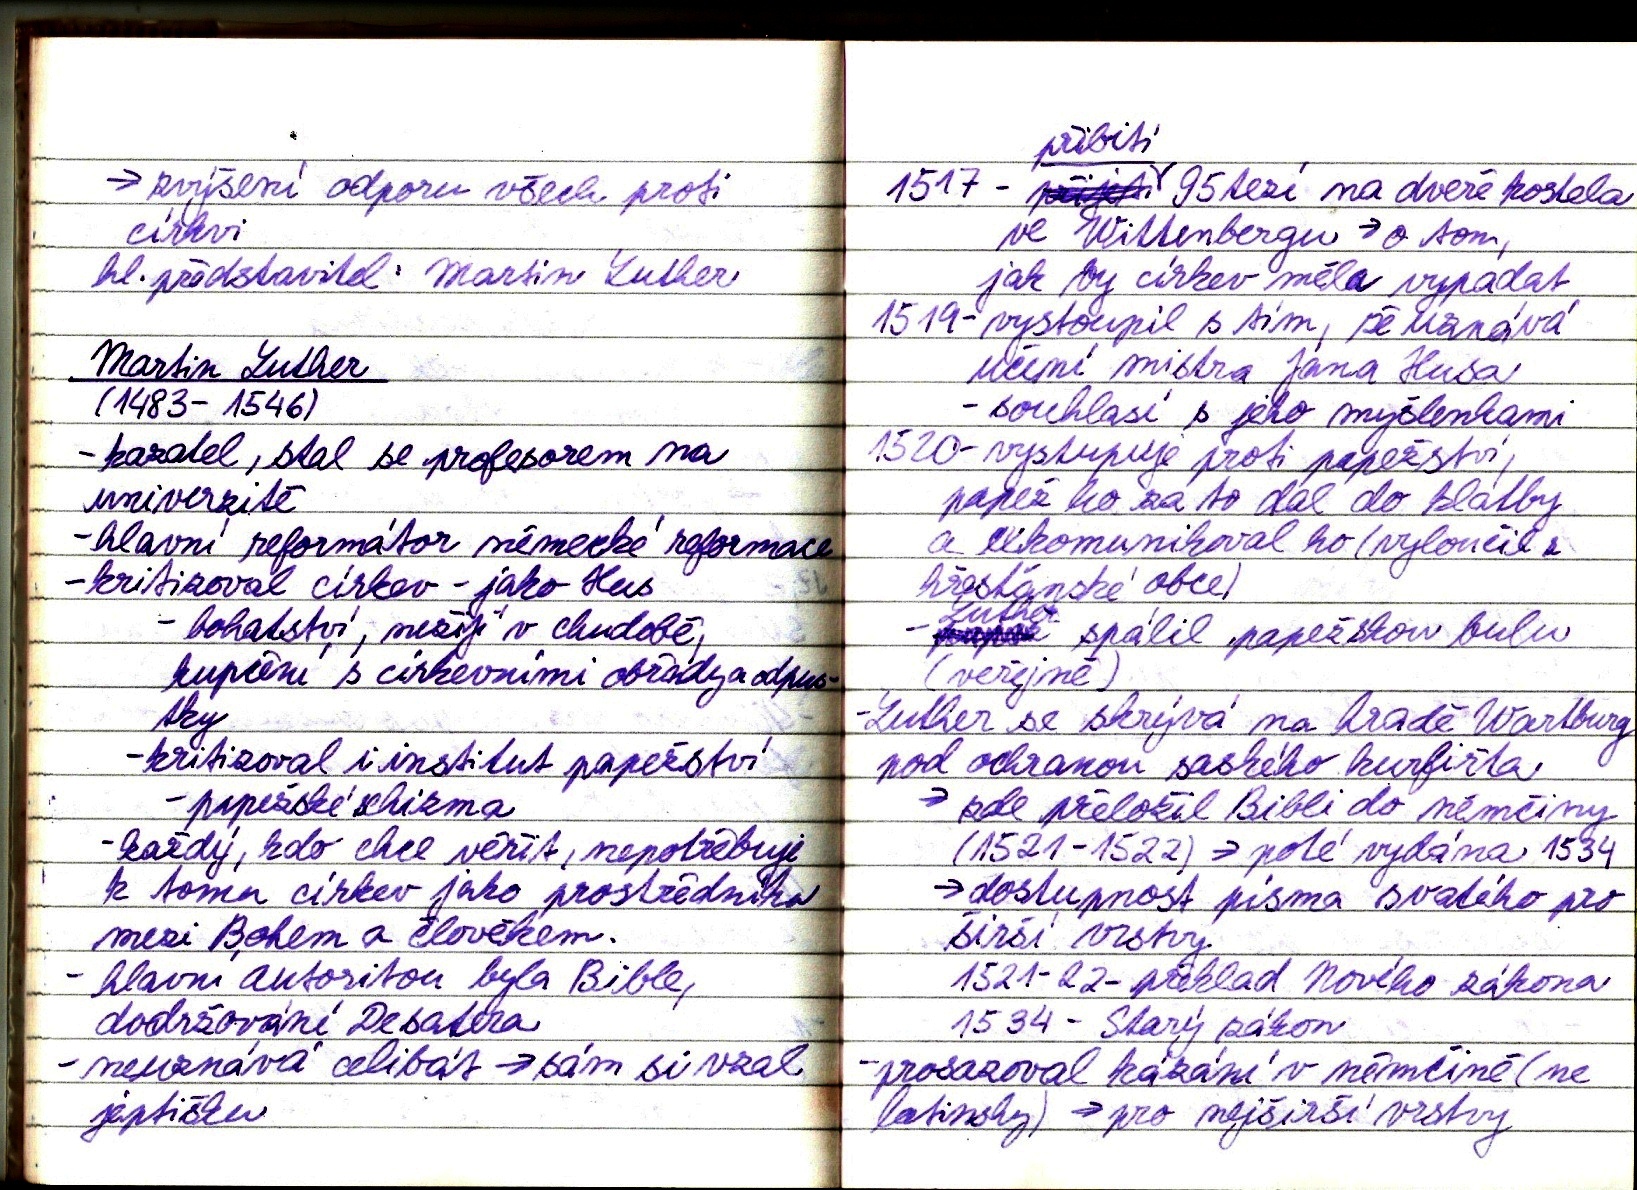 → zvýšení odporu všech proti
církvi
hl. představitel: Martin Luther
Martin Luther
(1483 - 1546)
- kazatel, stal se profesorem na
univerzitě
- hlavní reformátor německé reformace
- kritizoval církev - jako Hus
- bohatství, nežijí v chudobě,
kupčení s církevními obřady a odpus-
tky
- kritizoval i institut papežství
- papežské schizma
- každý, kdo chce věřit, nepotřebuje
k tomu církev jako prostředníka
mezi Bohem a člověkem.
- hlavní autoritou byla Bible,
dodržování Desatera
- neuznává celibát → sám si vzal
jeptišku
přibití
1517 - přijetí 95 tezí na dveře kostela
ve Wittenbergu → o tom,
jak by církev měla vypadat
1519 - vystoupil s tím, že uznává
učení mistra Jana Husa
- souhlasí s jeho myšlenkami
1520 - vystupuje proti papežství,
papež ho za to dal do klatby
a exkomunikoval ho (vyloučil z
křesťanské obce)
Luther
- spálil papežskou bulu
(veřejně)
- Luther se skrývá na hradě Wartburg
pod ochranou saského kurfiřta
→ zde přeložil Bibli do němčiny
(1521 - 1522) → poté vydána 1534
→ dostupnost písma svatého pro
širší vrstvy
1521 - 22 - překlad Nového zákona
1534 - Starý zákon
- prosazoval kázání v němčině (ne
latinsky) → pro nejširší vrstvy